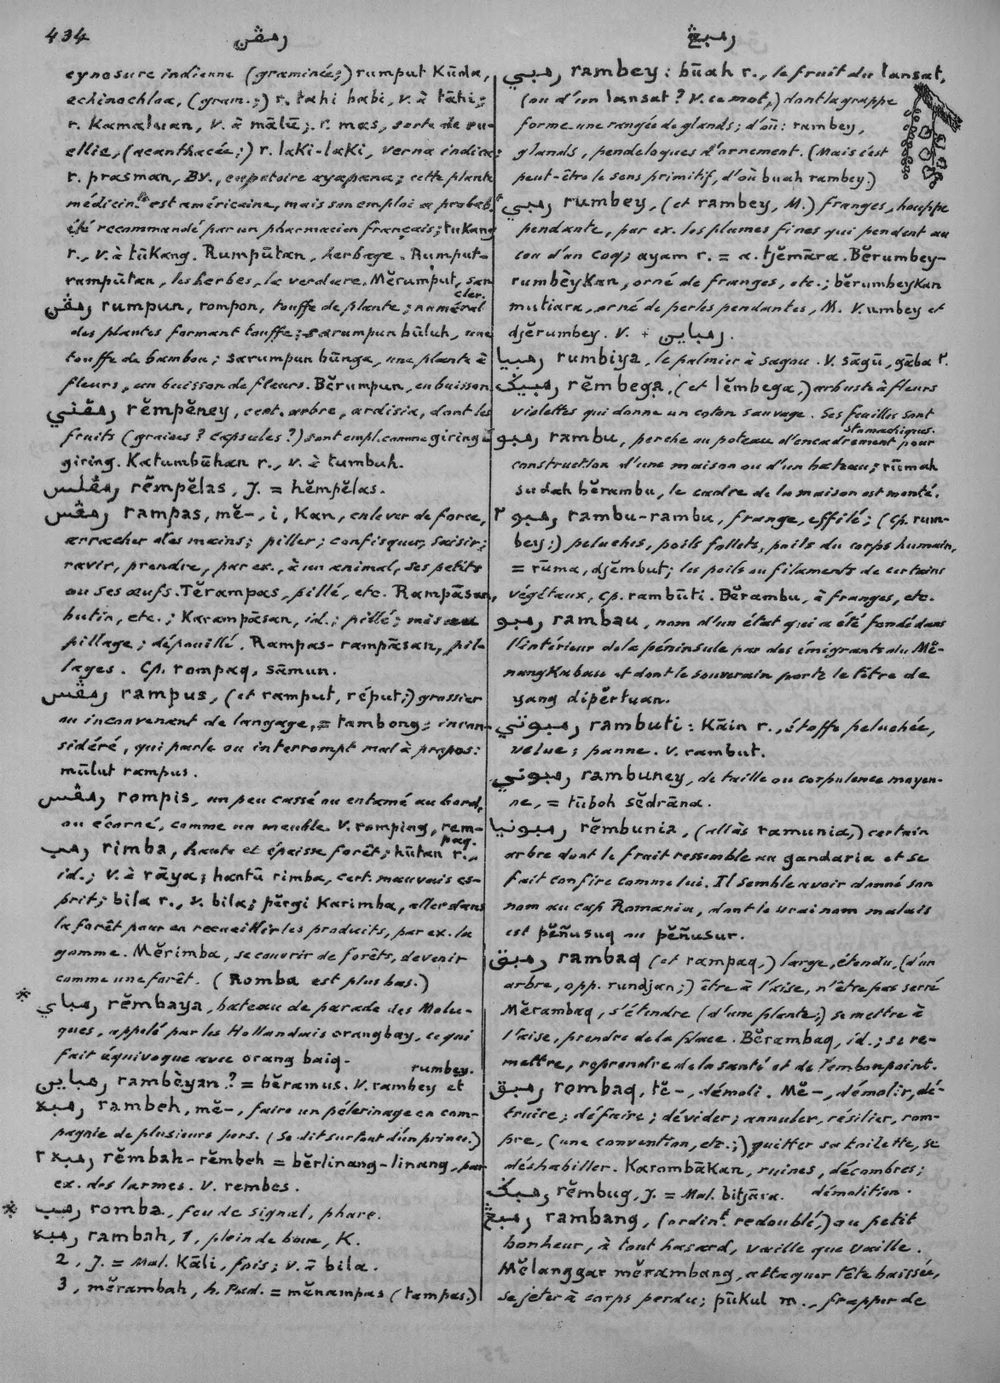 434
رمڤن
رمبڠ
cynosure indienne (graminée;) rumput Kūda,
echinochloa, (gram.;) r. tahi babi, v. à tāhi;
r. Kamaluan, v. à mālū; r. mas, sorte de ru-
ellie, (acanthacée;) r. laki-laki, verna indica;
r. prasman, BV., eupatoire ayapana; cette plante
médicin.le est américaine, mais son emploi a probab.t
été recommandé par un pharmacien français; tukang
r., v. à tūkang. Rumpūtan, herbage. Rumput-
rumpūtan, les herbes, la verdure. Mĕrumput, sar-
cler.
رمڤن rumpun, rompon, touffe de plante; numéral
des plantes formant touffe; sarumpun būluh, une
touffe de bambou; sarumpun būnga, une plante à
fleurs, un buisson de fleurs. Bĕrumpun, en buisson.
رمڤني rĕmpĕney, cert. arbre, ardisia, dont les
fruits (graines? capsules?) sont empl. comme giring-
giring. Katumbūhan r., v. à tumbuh.
رمڤلس rĕmpĕlas, J. = hĕmpĕlas.
رمڤس rampas, mĕ-, i, Kan, enlever de force,
arracher des mains; piller; confisquer, saisir;
ravir, prendre, par ex., à un animal, ses petits
ou ses œufs. Tĕrampas, pillé, etc. Rampāsan,
butin, etc.; Karampāsan, id.; pillé; mis au
pillage; dépouillé. Rampas-rampāsan, pil-
lages. Cp. rompaq, sāmun.
رمڤس rampus, (et ramput, réput;) grossier
ou inconvenant de langage, = tambong; incon-
sidéré, qui parle ou interrompt mal à propos:
mūlut rampus.
رمڤس rompis, un peu cassé ou entamé au bord,
ou écorné, comme un meuble. V. romping, rom-
paq.
رمب rimba, haute et épaisse forêt; hūtan r.,
id.; v. à rāya; hantū rimba, cert. mauvais es-
prit; bila r., v. bila; pĕrgi Karimba, aller dans
la forêt pour en recueillir les produits, par ex. la
gomme. Mĕrimba, se couvrir de forêts, devenir
comme une forêt. (Romba est plus bas.)
* رمباي rĕmbaya, bateau de parade des Molu-
ques, appelé par les Hollandais orangbay, ce qui
fait équivoque avec orang baiq.
رمباين rambèyan? = bĕramus. V. rambey et
rumbey.
رمبه rambeh, mĕ-, faire un pélerinage en com-
pagnie de plusieurs pers. (Se dit surtout d'un prince.)
رمبه ٢ rĕmbah-rĕmbeh = bĕrlinang-linang, par
ex. des larmes. V. rembes.
* رمب romba, feu de signal, phare.
رمبه rambah, 1, plein de boue, K.
2, J. = Mal. Kāli, fois; v. à bila.
3, mĕrambah, h. Pad. = mĕnampas (tampas.)
رمبي rambey: būah r., le fruit du lansat,
(ou d'un lansat? V. ce mot,) dont la grappe
forme une rangée de glands; d'où: rambey,
glands, pendeloques d'ornement. (Mais c'est
peut-être le sens primitif, d'où buah rambey.)
رمبي rumbey, (et rambey, M.) franges, houppe
pendante, par ex. les plumes fines qui pendent au
cou d'un coq; ayam r. = a. tjĕmāra. Bĕrumbey-
rumbèyKan, orné de franges, etc.; bĕrumbeyKan
mutiara, orné de perles pendantes, M. V. umbey et
djĕrumbey. V. + رمباين.
رمبيا rumbiya, le palmier à sagou. V. sāgū, gāba ٢.
رمبيݢ rĕmbega, (et lĕmbega,) arbuste à fleurs
violettes qui donne un coton sauvage. Ses feuilles sont
stomachiques.
رمبو rambu, perche ou poteau d'encadrement pour
construction d'une maison ou d'un bateau; rūmah
sudah bĕrambu, le cadre de la maison est monté.
رمبو ٢ rambu-rambu, frange, effilé; (Cp. rum-
bey:) peluches, poils follets, poils du corps humain,
= rūma, djĕmbut; les poils ou filaments de certains
végétaux, Cp. rambūti. Bĕrambu, à franges, etc.
رمبو rambau, nom d'un état qui a été fondé dans
l'intérieur de la péninsule par des émigrants du Mĕ-
nangKabau et dont le souverain porte le titre de
yang dipĕrtuan.
رمبوتي rambuti: Kāin r., étoffe peluchée,
velue; panne. V. rambut.
رمبوني rambuney, de taille ou corpulence moyen-
ne, = tūboh sĕdrāna.
رمبونيا rĕmbunia, (aliàs ramunia,) certain
arbre dont le fruit ressemble au gandaria et se
fait confire comme lui. Il semble avoir donné son
nom au cap Romania, dont le vrai nom malais
est pĕñusuq ou pĕñusur.
رمبق rambaq (et rampaq,) large, étendu, (d'un
arbre, opp. rundjan;) être à l'aise, n'être pas serré
Mĕrambaq, s'étendre (d'une plante;) se mettre à
l'aise, prendre de la place. Bĕrambaq, id.; se re-
mettre, reprendre de la santé et de l'embonpoint.
رمبق rombaq, tĕ-, démoli. Mĕ-, démolir, dé-
truire; défaire; dévider; annuler, résilier, rom-
pre, (une convention, etc.;) quitter sa toilette, se
déshabiller. Karombākan, ruines, décombres;
démolition.
رمبݢ rĕmbug, J. = Mal. bitjāra.
رمبڠ rambang, (ordin.t redoublé,) au petit
bonheur, à tout hasard, vaille que vaille.
Mĕlanggar mĕrambang, attaquer tête baissée,
se jeter à corps perdu; pūkul m., frapper de